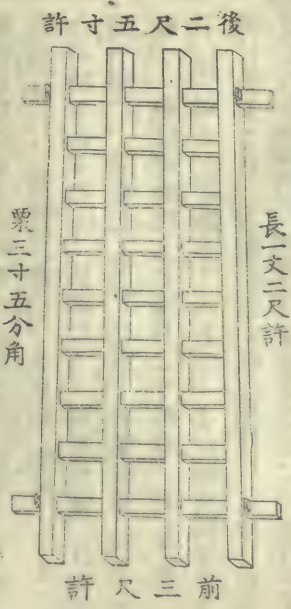 後二尺五寸許
長一丈二尺許
栗三寸五分角
前三尺許